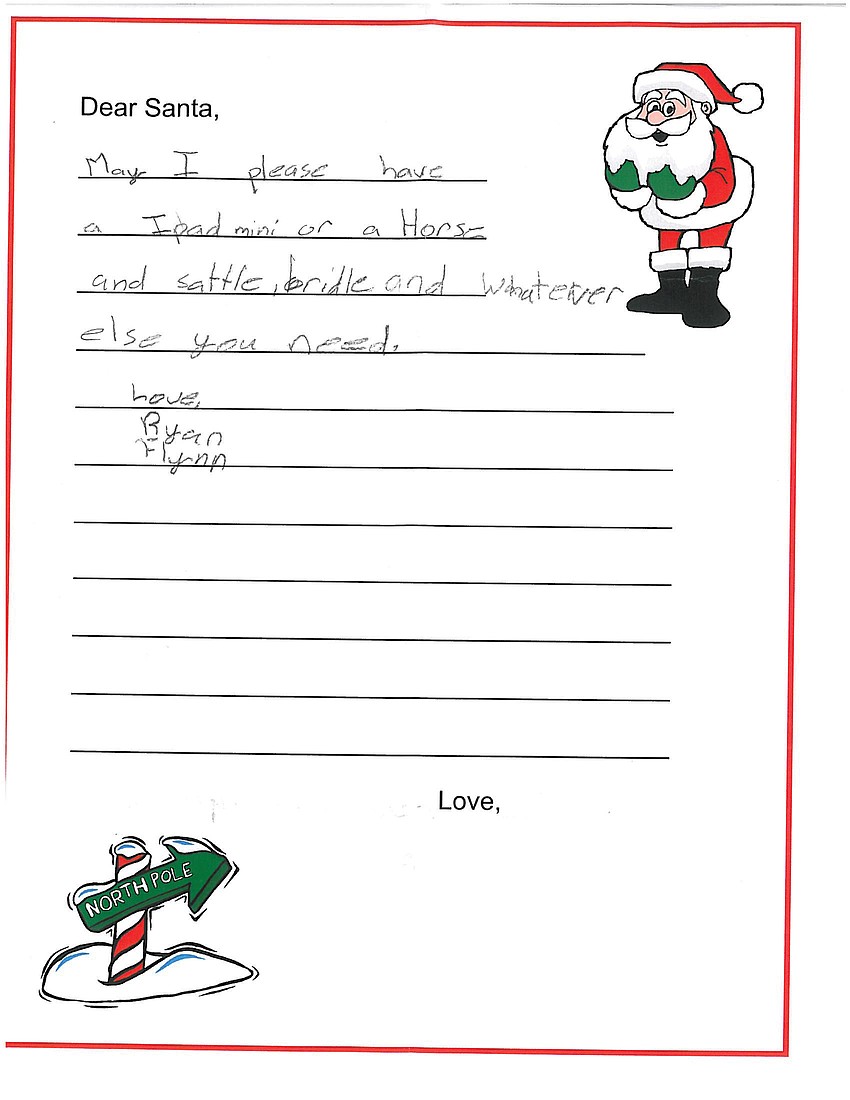 Dear Santa,
May I please have
a Ipad mini or a Horse
and sattle, bridle and whatever
else you need.
Love,
Ryan
Flynn
Love,
NORTH POLE